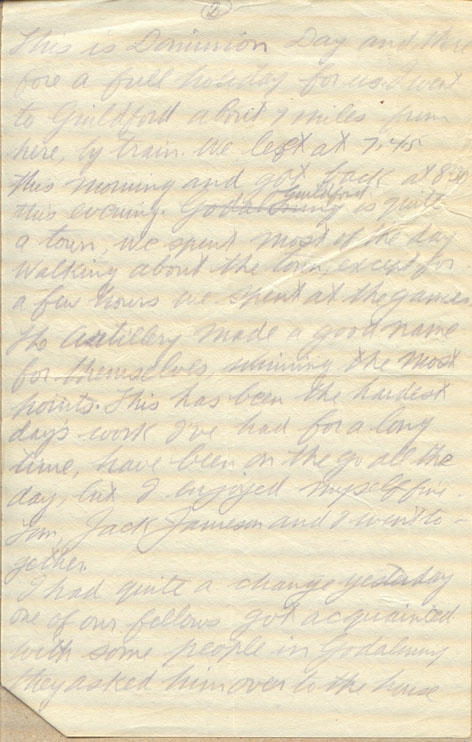 (2)
This is Dominion Day and there
fore a full holiday for us. I went
to Guildford about 7 miles from
here, by train. We left at 7.45
this morning and got back at 8.30
this evening. Godalming Guildford is quite
a town, we spent most of the day
walking about the town, except for
a few hours we spent at the games
the Artillery made a good name
for themselves, winning the most
points. This has been the hardest
day's work I've had for a long
time, have been on the go all the
day, but I enjoyed myself fine.
Tom, Jack Jameson and I went to-
gether.
I had quite a change yesterday
one of our fellows got acquainted
with some people in Godalming
they asked him over to the house